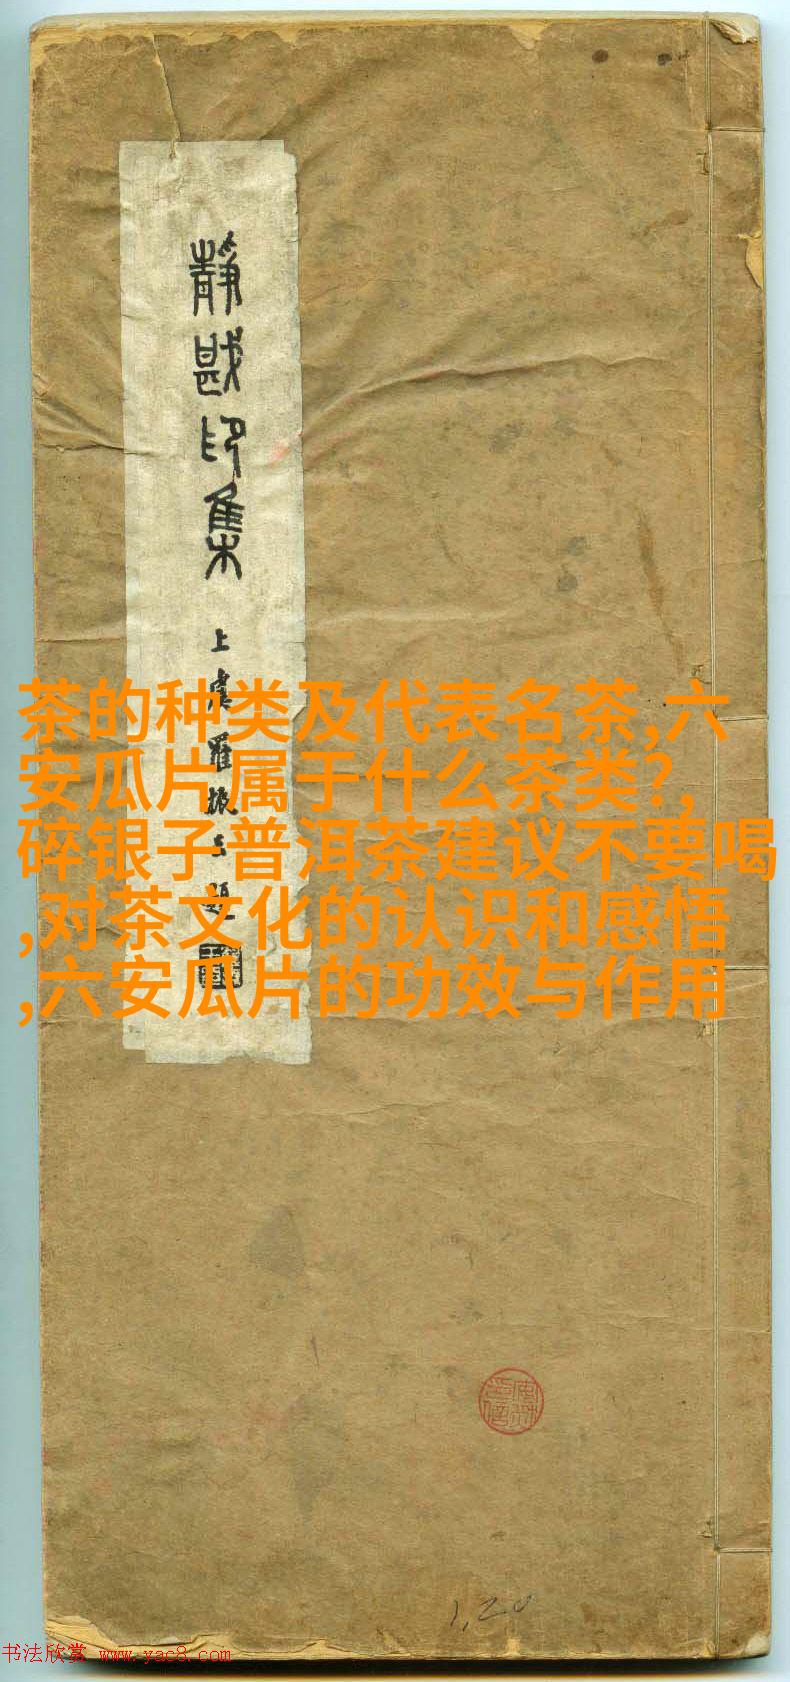 靜戡印集
上虞羅振玉題
茶的种类及代表名茶,六
安瓜片属于什么茶类?,
碎银子普洱茶建议不要喝
,对茶文化的认识和感悟
,六安瓜片的功效与作用
1,20
书法欣赏 www.yac8.com